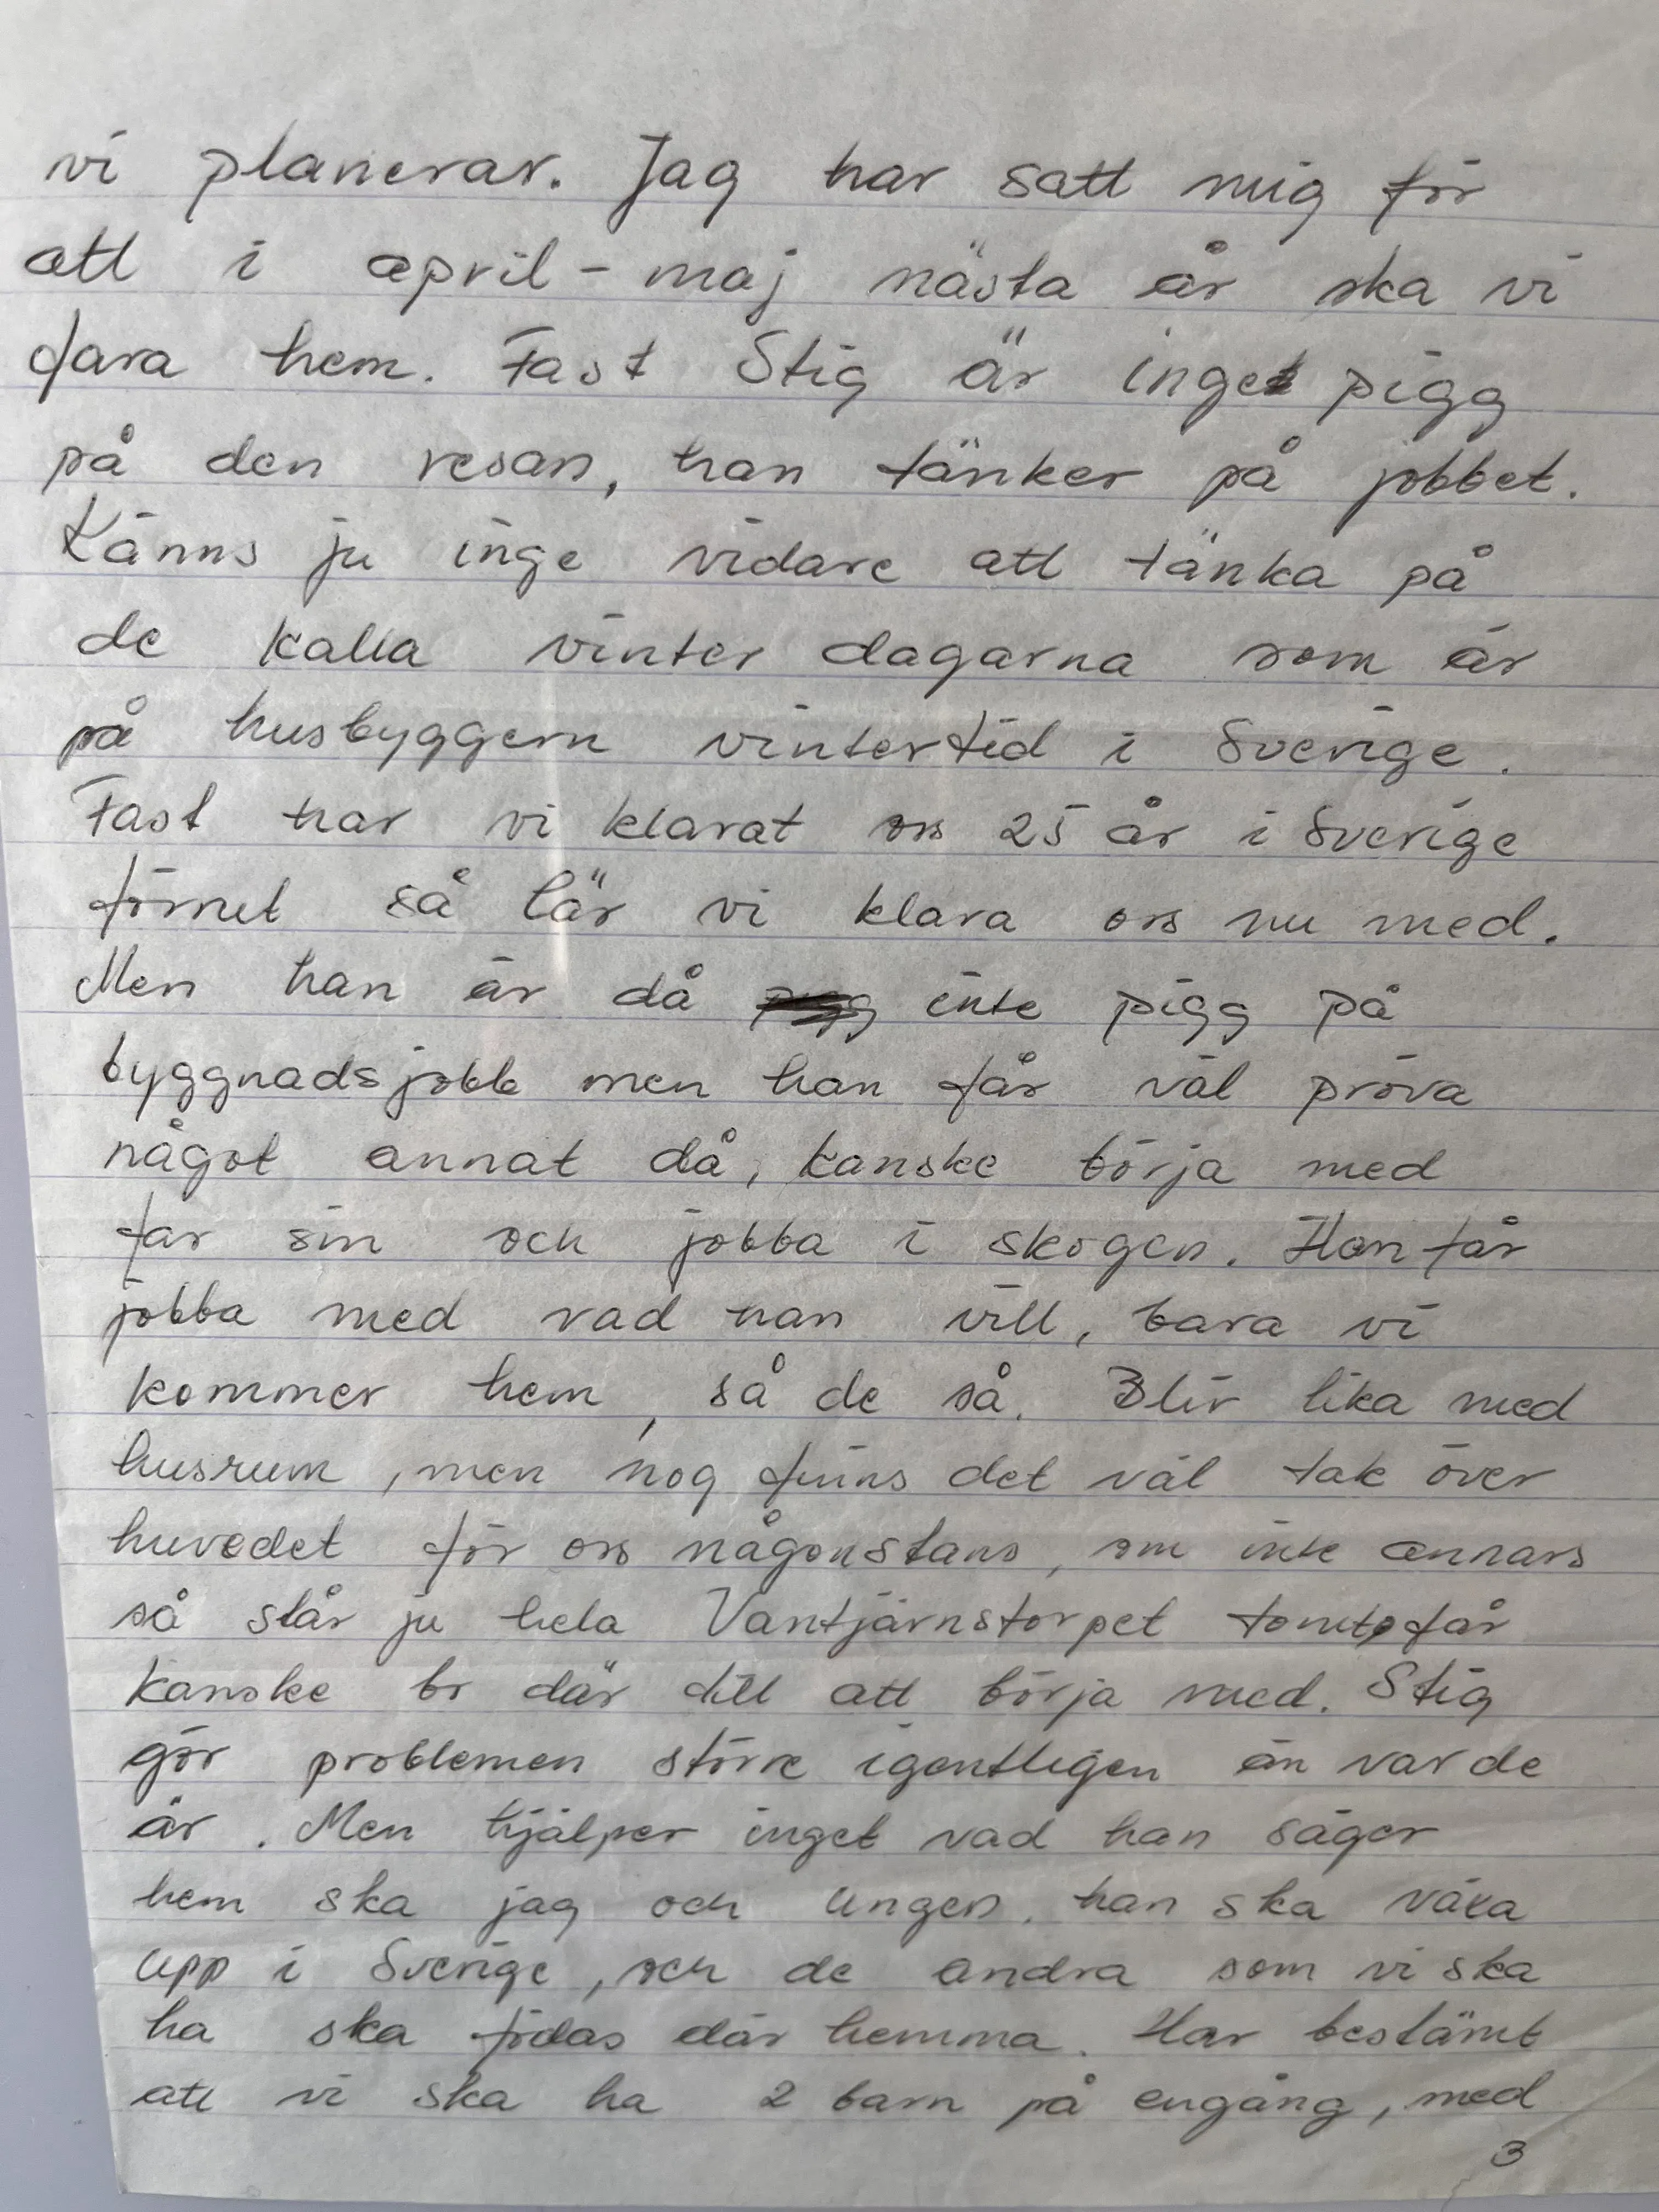 vi planerar. Jag har satt mig för
att i april - maj nästa år ska vi
fara hem. Fast Stig är inget pigg
på den resan, han tänker på jobbet.
Känns ju inge vidare att tänka på
de kalla vinter dagarna som är
på husbyggern vintertid i Sverige.
Fast har vi klarat oss 25 år i Sverige
förrut så lär vi klara oss nu med.
Men han är då inte pigg på
byggnadsjobb men han får väl pröva
något annat då, kanske börja med
far sin och jobba i skogen. Han får
jobba med vad han vill, bara vi
kommer hem, så de så. Blir lika med
husrum, men nog finns det väl tak över
huvedet för oss någonstans, om inte annars
så står ju hela Vantjärnstorpet tomt, får
kanske bo där till att börja med. Stig
gör problemen större igentligen än var de
är. Men hjälper inget vad han säger
hem ska jag och ungen, han ska växa
upp i Sverige, och de andra som vi ska
ha ska födas där hemma. Har bestämt
att vi ska ha 2 barn på engång, med
3